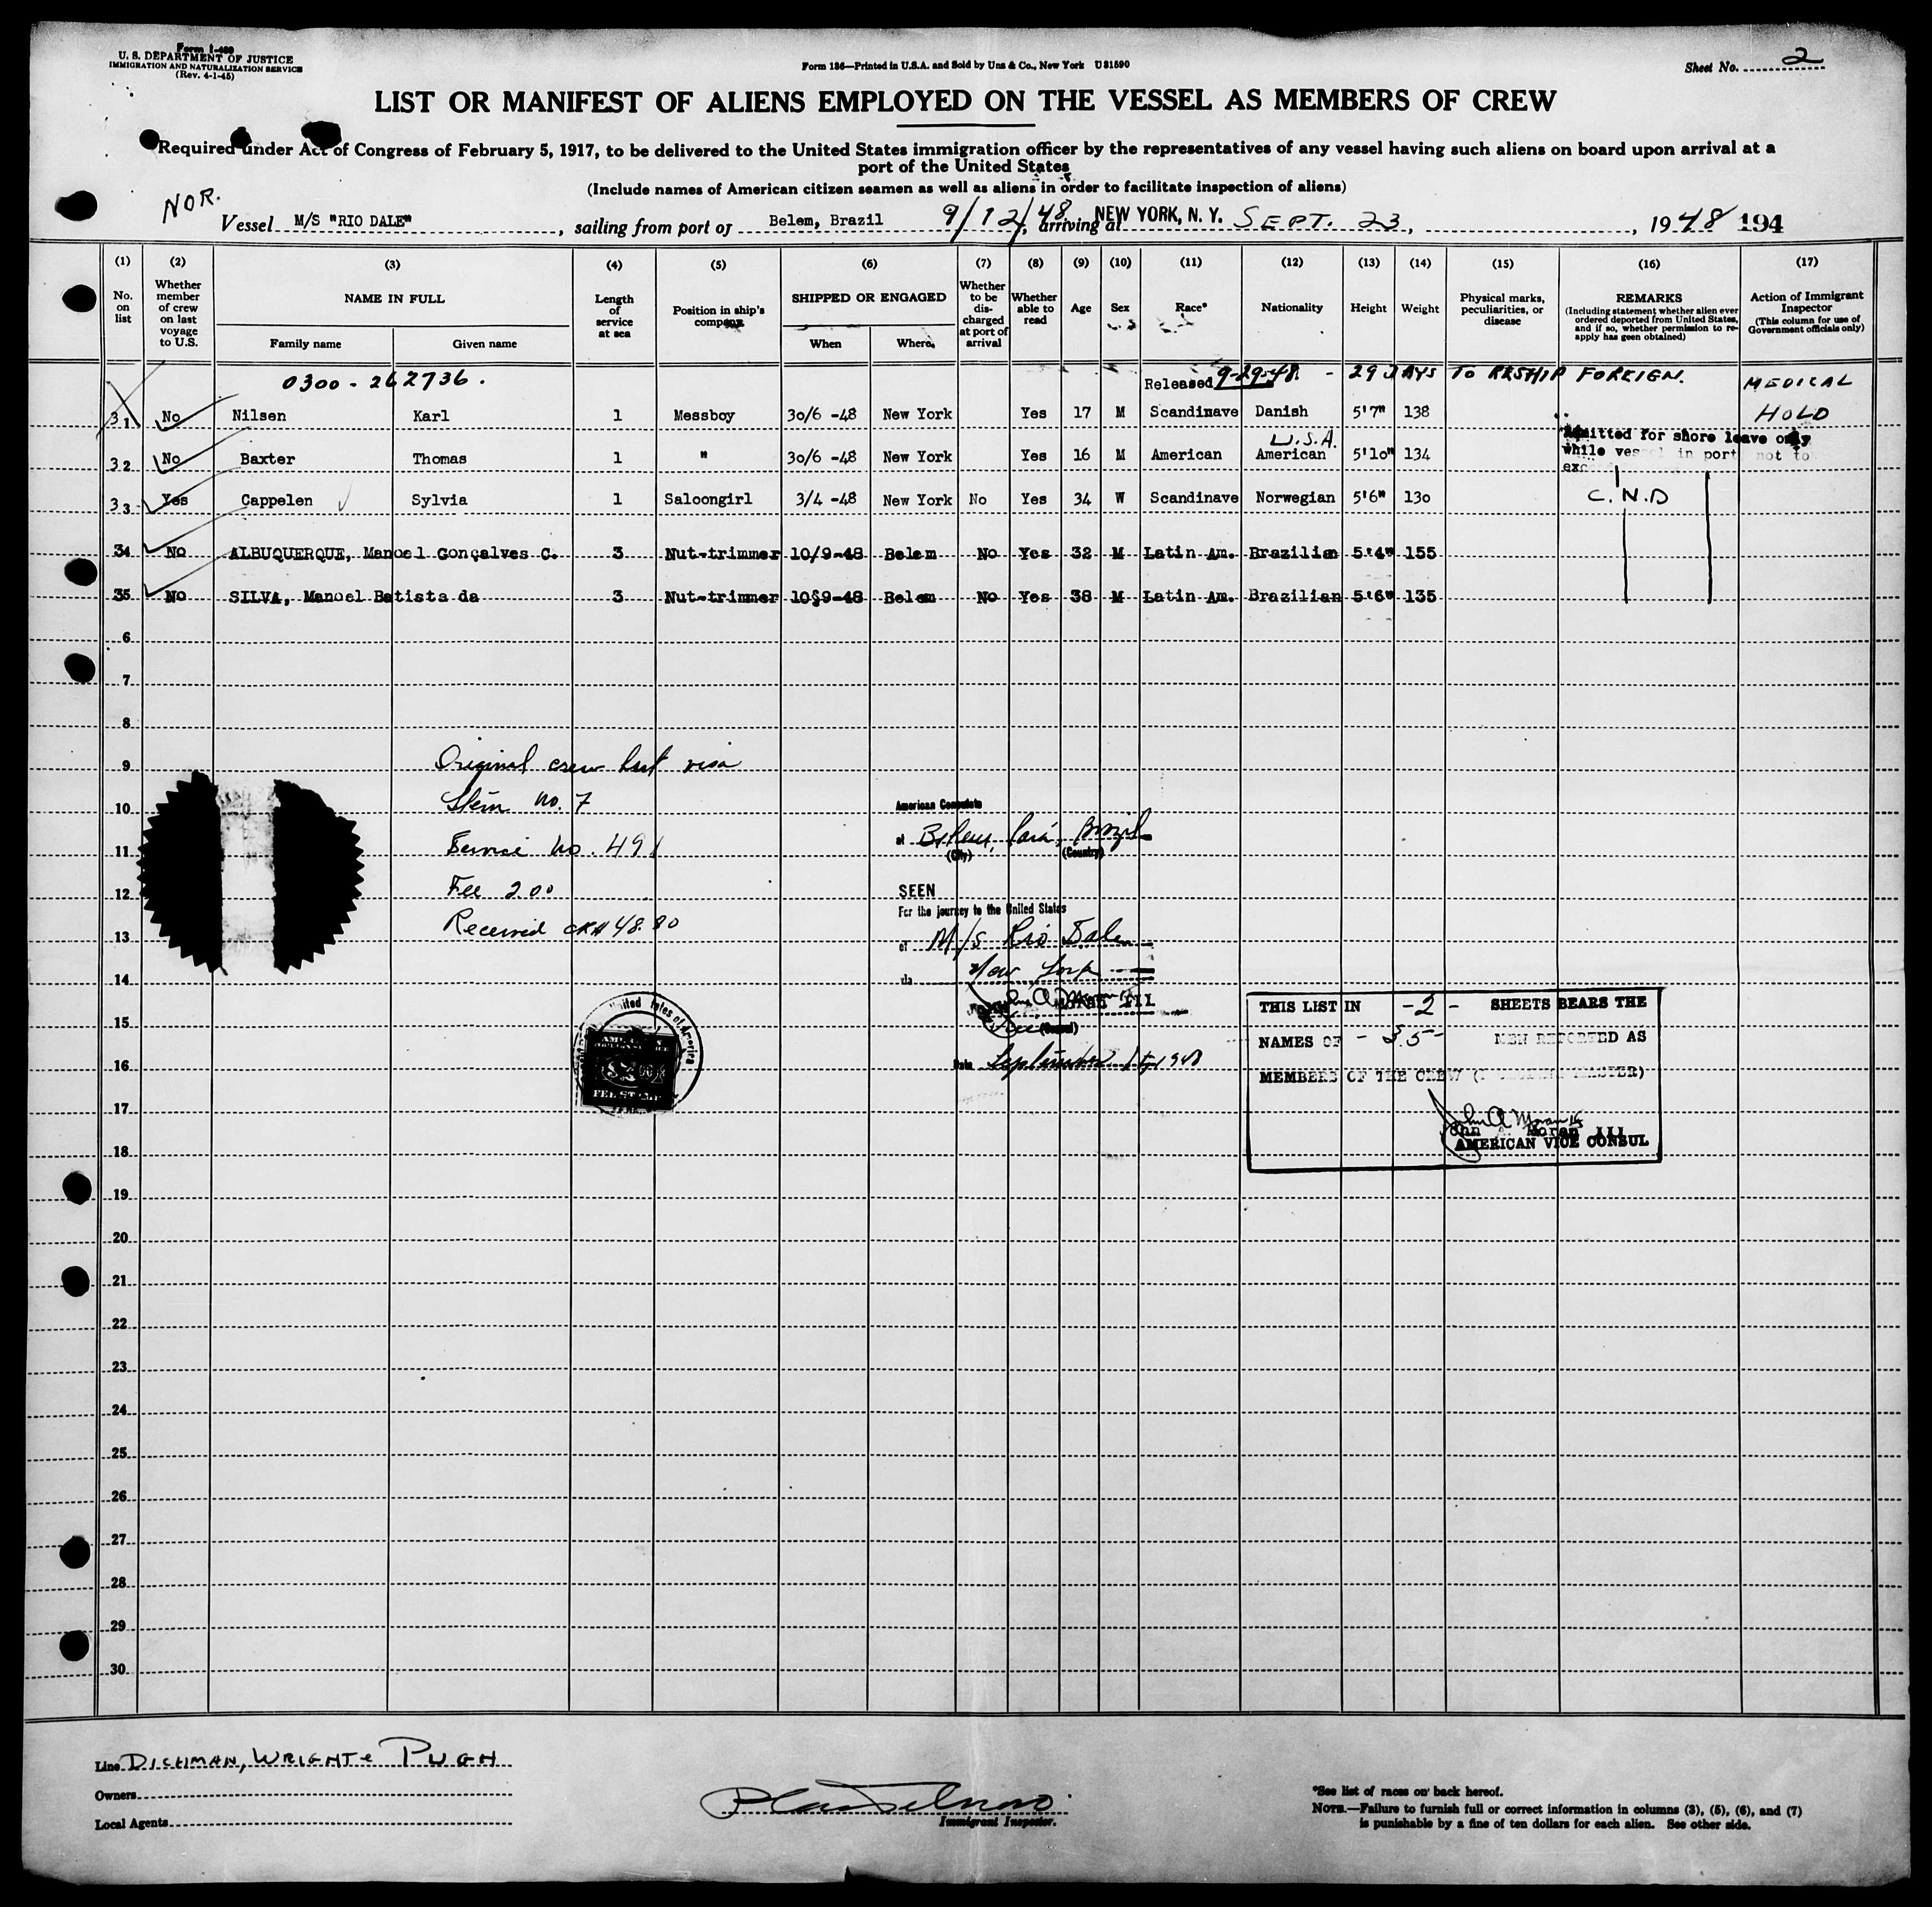 Form I-480
U. S. DEPARTMENT OF JUSTICE
IMMIGRATION AND NATURALIZATION SERVICE
(Rev. 4-1-45)
Form 136—Printed in U.S.A. and Sold by Unz & Co., New York U81590
Sheet No. 2
LIST OR MANIFEST OF ALIENS EMPLOYED ON THE VESSEL AS MEMBERS OF CREW
Required under Act of Congress of February 5, 1917, to be delivered to the United States immigration officer by the representatives of any vessel having such aliens on board upon arrival at a
port of the United States
(Include names of American citizen seamen as well as aliens in order to facilitate inspection of aliens)
NOR.
Vessel M/S "RIO DALE", sailing from port of Belem, Brazil 9/12/48, arriving at NEW YORK, N. Y. SEPT. 23, 1948 194
(1) (2) (3) (4) (5) (6) (7) (8) (9) (10) (11) (12) (13) (14) (15) (16) (17)
No. on list
Whether member of crew on last voyage to U.S.
NAME IN FULL
Family name Given name
Length of service at sea
Position in ship's company
SHIPPED OR ENGAGED
When Where
Whether to be discharged at port of arrival
Whether able to read
Age
Sex
Race*
Nationality
Height
Weight
Physical marks, peculiarities, or disease
REMARKS
(Including statement whether alien ever ordered deported from United States, and if so, whether permission to reapply has been obtained)
Action of Immigrant Inspector
(This column for use of Government officials only)
0300 - 262736. Released 9-29-48. - 29 DAYS TO RESHIP FOREIGN. MEDICAL
31 No Nilsen Karl 1 Messboy 30/6 -48 New York Yes 17 M Scandinave Danish 5'7" 138 HOLD
U.S.A. Admitted for shore leave only
32 No Baxter Thomas 1 " 30/6 -48 New York Yes 16 M American American 5'10" 134 while vessel in port not to
33 Yes Cappelen Sylvia 1 Saloongirl 3/4 -48 New York No Yes 34 W Scandinave Norwegian 5'6" 130 C.N.D
34 No ALBUQUERQUE, Manoel Gonçalves C. 3 Nut-trimmer 10/9-48 Belem No Yes 32 M Latin Am. Brazilian 5'4" 155
35 No SILVA, Manoel Batista da 3 Nut-trimmer 10§9-48 Belem No Yes 38 M Latin Am. Brazilian 5'6" 135
6
7
8
9
10
11
12
13
14
15
16
17
18
19
20
21
22
23
24
25
26
27
28
29
30
Original crew list visa
Item no. 7
Service no. 491
Fee 2.00
Received CR# 48.80
American Consulate
at Belem, Pará, Brazil
(City) (Country)
SEEN
For the journey to the United States
of M/S Rio Dale
via New York
(Consul)
Date September 1948
United States of America
FEE STAMP
THIS LIST IN -2- SHEETS BEARS THE
NAMES OF -35- MEN REPORTED AS
MEMBERS OF THE CREW (INCLUDING MASTER)
John A Moran III
John A. Moran III
AMERICAN VICE CONSUL
Line DICHMAN, WRIGHT & PUGH
Owners
Local Agents
Immigrant Inspector.
*See list of races on back hereof.
NOTE.—Failure to furnish full or correct information in columns (3), (5), (6), and (7)
is punishable by a fine of ten dollars for each alien. See other side.